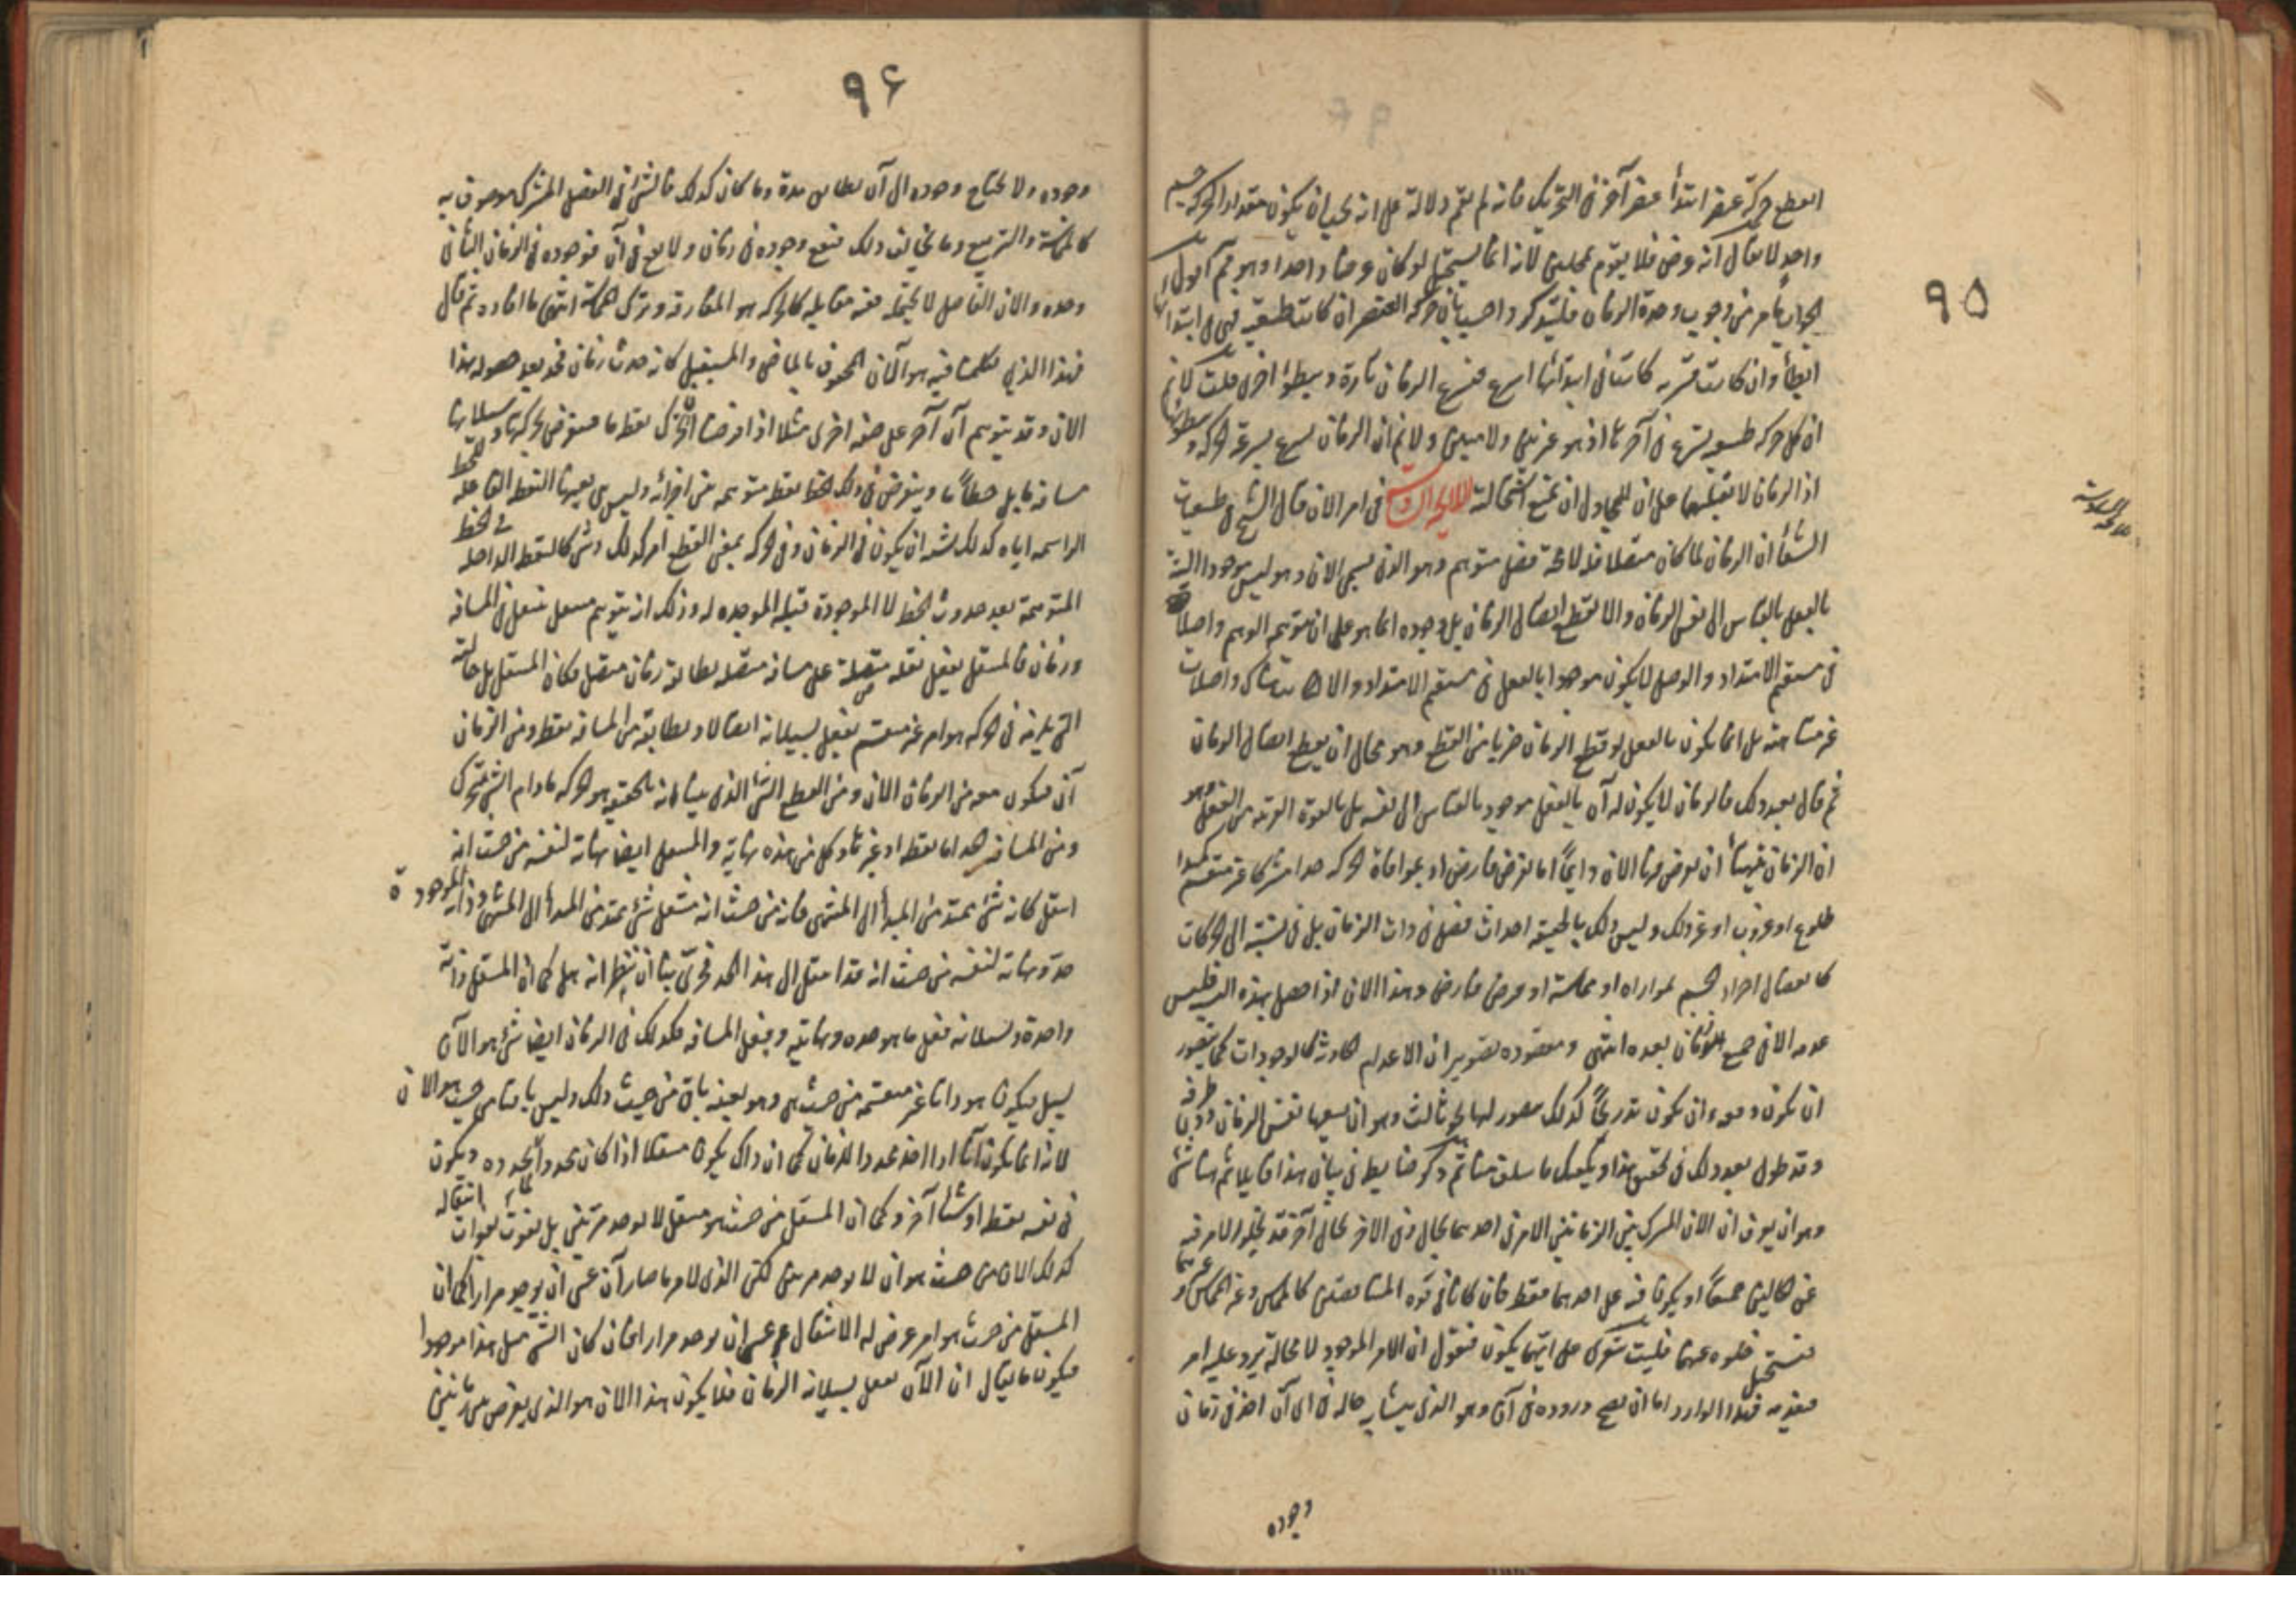 ٩٥
انقطع حركة عنصر ابتدأ عنصر آخر في التحريك فانه لم يقم دلالة على انه يجب ان يكون مقدار الحركة جسم
واحد لا يقال انه عرض فلا يقوم بمحلين لانه انما يستحيل لو كان عرضا واحدا وهو ثم اقول
الجواب ما مر من وجوب وحدة الزمان فليتذكر واحسب بان حركة العنصر ان كانت طبيعية فهي في ابتدائها
ابطأ وان كانت قسرية كانت في ابتدائها اسرع فيسرع الزمان تارة ويبطؤ اخرى قلت لا نم
ان كل حركة طبيعية تسرع في آخرها اذ هو غير بين ولا مبين ولا نم ان الزمان يسرع بسرعة الحركة و بطؤها
اذ الزمان لا يقبلهما على ان للمجادل ان يمنع استحالة اللايحة السادسة في امر الآن قال الشيخ في طبيعيات
اللايحة السادسة
الشفا ان الزمان لما كان متصلا فله لا محالة فصل متوهم وهو الذي يسمى الآن وهو ليس موجودا البتة
بالفعل بالقياس الى نفس الزمان والا لقطع اتصال الزمان بل وجوده انما هو على ان يتوهم الوهم واصلا
في مستقيم الامتداد والوصل لا يكون موجودا بالفعل في مستقيم الامتداد والا لكانت هناك واصلات
غير متناهية بل انما يكون بالفعل لو قطع الزمان ضربا من القطع وهو محال ان يقطع اتصال الزمان
ثم قال بعد ذلك فالزمان لا يكون له آن بالفعل موجود بالقياس الى نفسه بل بالقوة القريبة من الفعل وهو
ان الزمان يتهيأ ان يفرض فيه الآن دايما اما بفرض فارض او بموافاة الحركة حدا مشتركا غير منقسم كمبدأ
طلوع او غروب او غير ذلك وليس ذلك بالحقيقة احداث فصل في ذات الزمان بل في نسبته الى الحركات
كما يفصل اجزاء الجسم بموازاة او مماسة او بفرض فارض وهذا الآن اذا حصل بهذه النسبة فليس
عدمه الا في جميع الزمان بعده انتهى ومقصوده تصوير ان الاعدام الحادثة كالوجودات كما يتصور
ان تكون دفعة وان تكون تدريجا كذلك يتصور لها نحو ثالث وهو ان يسعها نفس الزمان دون طرفه
وقد طول بعد ذلك في تحقيق هذا ويكفيك ما سلف منا ثم ذكر ضابطة في بيان هذا مما يلائم هنا شئ
وهو ان يعرف ان الآن المشترك بين الزمانين الامر في احدهما بحال وفي الآخر بحال آخر قد يخلو الامر فيه
عن الحالين جميعا او يكون فيه على احدهما فقط فان كانا في قوة المتناقضين كالمماس وغير المماس و غيرهما
فيستحيل خلوه عنهما فليت شعري على ايهما يكون فنقول ان الامر الموجود لا محالة يرد عليه امر
فيعدمه فهذا الوارد اما ان يصح وروده في آن وهو الذي يتشابه حاله في اي آن اخذ في زمان
وجوده
٩٦
وجوده ولا يحتاج وجوده الى آن يطابق مدة وما كان كذلك فالشئ في الفصل المشترك موصوف به
كالمماسة والتربيع وما يخالف ذلك فيقع وجوده في زمان ولا يقع في آن فوجوده في الزمان الثاني
وحده والآن الفاصل لا يحتمله ففيه مقابله كالحركة هو المفارقة وترك المماسة انتهى ما افاده ثم قال
فهذا الذي تكلمنا فيه هو الآن المحفوف بالماضي والمستقبل كانه حدث زمان فحد بعد حصوله بهذا
الآن وقد يتوهم آن آخر على صفة اخرى مثلا اذا فرضنا المتحرك نقطة ما فيفرض بحركتها وسيلانها
مسافة ما بل خطا ما ويفترض في ذلك الخط نقط متوهمة من اجزائه وليس هي بعينها النقطة الفاعلة للخط
الراسمة اياه كذلك يشبه ان يكون في الزمان وفي الحركة بمعنى القطع امر كذلك وشئ كالنقط الداخلة في الخط
المتوهمة بعد حدوث الخط لا الموجودة قبله الموجدة له وذلك ان يتوهم منتقل ينتقل في المسافة
وزمان فالمنتقل يفعل نقلة متصلة على مسافة متصلة يطابقه زمان متصل فكان المنتقل بل حالته
التي تلزمه في الحركة هو امر غير منقسم يفعل بسيلانه اتصالا ويطابقه من المسافة نقط ومن الزمان
آن فيكون معه من الزمان الآن ومن القطع الشئ الذي بينا انه بالحقيقة هو الحركة ما دام الشئ يتحرك
ومن المسافة حد اما نقطة او غيرها وكل من هذه نهاية والمنتقل ايضا نهاية لنفسه من حيث انه
انتقل كانه شئ ممتد من المبدأ الى المنتهى فانه من حيث انه منتقل شئ ممتد من المبدأ الى المنتهى وذاته الموجودة
حد ونهاية لنفسه من حيث انه قد انتقل الى هذا الحد فحري بنا ان ننظر انه هل كما ان المنتقل ذاته
واحدة وبسيلانه فعل ما هو حده ونهايته وفعل المسافة فكذلك في الزمان ايضا شئ هو الآن
يسيل فيكون هو ذاتا غير منقسمة من حيث هي وهو بعينه باق من حيث ذلك وليس باقيا من حيث هو الآن
لانه انما يكون آنا اذا اخذ محددا للزمان كما ان ذاك يكون منتقلا اذا كان محددا لما يحدده ويكون
في نفسه نقطة او شيئا آخر وكما ان المنتقل من حيث هو منتقل لا يوجد مرتين بل يفوت بفوات انتقاله
كذلك الآن من حيث هو آن لا يوجد مرتين لكن الذي لامر ما صار آنا عسى ان يوجد مرارا كما ان
المنتقل من حيث هو امر عرض له الانتقال عسى ان يوجد مرارا فان كان الشئ مثل هذا موجودا
فيكون ما يقال ان الآن يفعل بسيلانه الزمان فلا يكون هذا الآن هو الذي يفرض بين زمانين